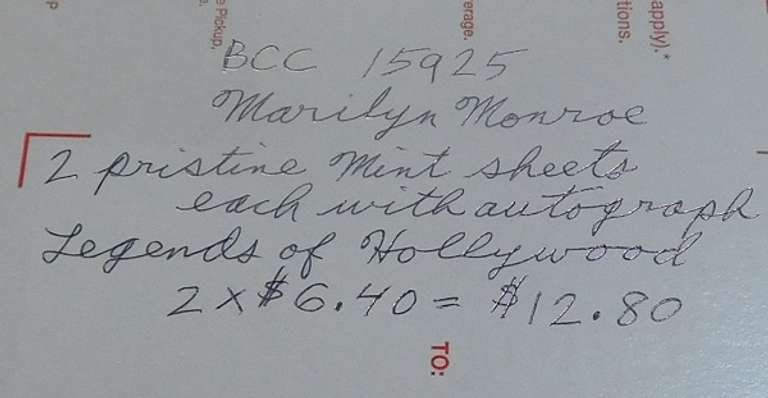 BCC 15925
Marilyn Monroe
2 pristine Mint sheets
each with autograph
Legends of Hollywood
2 x $6.40 = $12.80
TO:
apply).*
tions.
erage.
e Pickup,